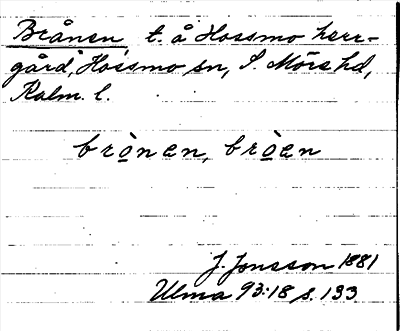 Brånen, t. å Hossmo herr-
gård, Hossmo sn, S. Möre hd,
Kalm. l.
brò̲nen, brò̲en
J. Jonsson 1881
Ulma 93:18, s. 133